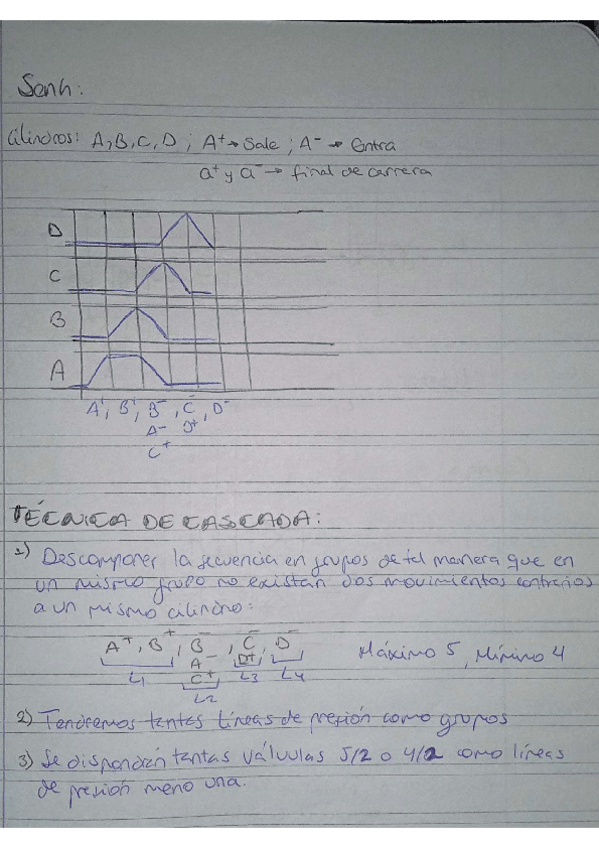 Senh:
Cilindros: A, B, C, D ; A+ → Sale ; A- → Entra
a+ y a- → final de carrera
D
C
B
A
A+, B+, B-, C-, D-
A- D+
C+
TÉCNICA DE CASCADA:
1) Descomponer la secuencia en grupos de tal manera que en
un mismo grupo no existan dos movimientos contrarios
a un mismo cilindro:
A+, B+, B-, C-, D- Máximo 5, Mínimo 4
A- D+
C+
L1 L2 L3 L4
2) Tendremos tantas líneas de presión como grupos
3) Se dispondrán tantas válvulas 5/2 o 4/2 como líneas
de presión meno una.